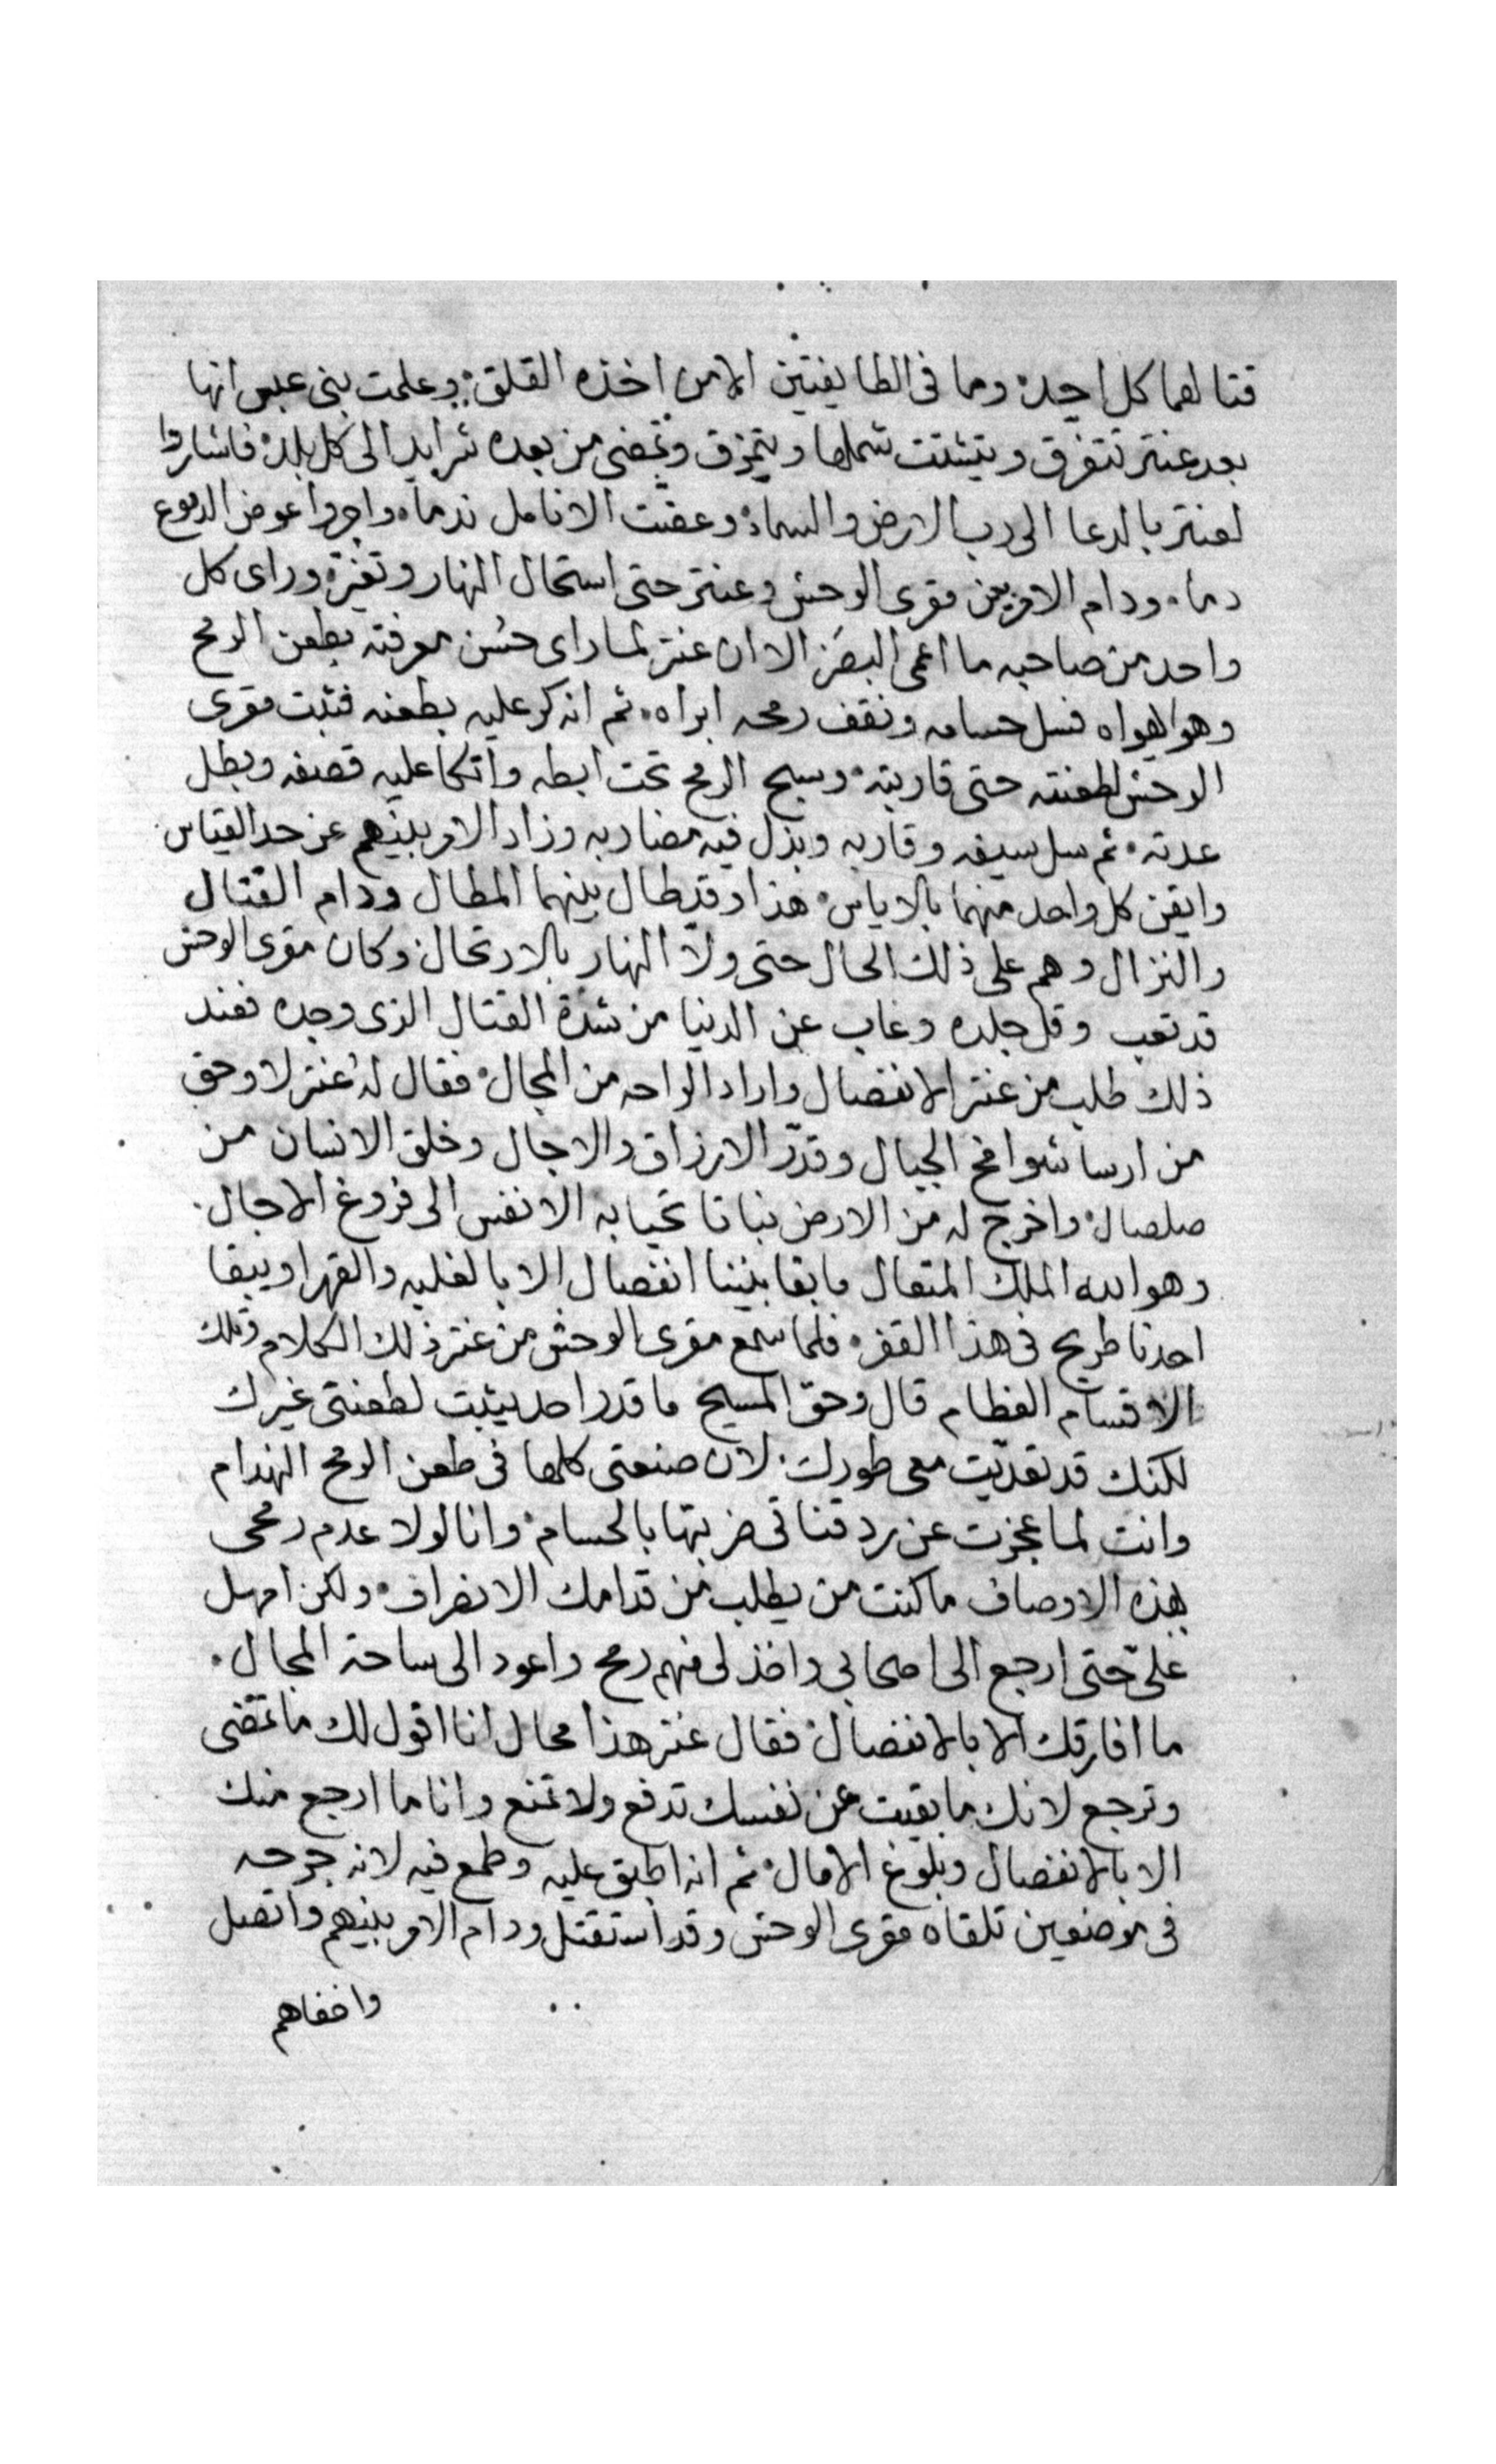 قتالهما كل احد، وما فى الطايفتين الا من اخذه القلق، وعلمت بنى عبس انها
بعد عنتر تتفرق ويتشتت شملها ويتمزق وتمضى من بعده شرايد الى كل بلد، فاشاروا
لعنتر بالدعا الى رب الارض والسماء، وعضت الانامل ندما، واجروا عوض الدموع
دما، ودام الامر بين مقرى الوحش وعنتر حتى استحال النهار وتغير، وراى كل
واحد من صاحبه ما اعمى البصر، الا ان عنتر لما راى حسن معرفته بطعن الرمح
وهو اهواه فسل حسامه ونقف رمحه ابراه، ثم انه كر عليه بطعنه فثبت مقرى
الوحش لطعنته حتى قاربته، وسيح الرمح تحت ابطه واتكا عليه قصفه وبطل
عدته، ثم سل سيفه وقاربه وبذل فيه مضاربه وزاد الامر بينهم عن حد القياس
وايقن كل واحد منهما بالاياس، هذا وقد طال بينهما المطال ودام القتال
والنزال وهم على ذلك الحال حتى ولا النهار بالارتحال، وكان مقرى الوحش
قد تعب وقل جلده وغاب عن الدنيا من شدة القتال الذى وجده فعند
ذلك طلب من عنتر الانفصال واراد الراحه من المجال، فقال له عنتر لا وحق
من ارسا شوامخ الجبال وقدّر الارزاق والاجال وخلق الانسان من
صلصال، واخرج له من الارض نباتا تحيا به الانفس الى فروغ الاجال،
وهو الله الملك المتعال ما بقا بيننا انفصال الا بالغلبه والقهر او يبقا
احدنا طريح فى هذا القفر، فلما سمع مقرى الوحش من عنتر ذلك الكلام وتلك
الاقسام العظام قال وحق المسيح ما قدر احد يثبت لطعنتى غيرك
لكنك قد تعديّت معى طورك، لان صنعتى كلها فى طعن الرمح الهدام
وانت لما عجزت عن رد قناتى ضربتها بالحسام، وانا لولا عدم رمحى
بهذه الاوصاف ما كنت من يطلب من قدامك الانصراف، ولكن امهل
علىّ حتى ارجع الى اصحابى واخذ لى منهم رمح واعود الى ساحة المجال،
ما افارقك الا بالانفصال، فقال عنتر هذا محال انا اقول لك ما تمضى
وترجع لانك ما بقيت عن نفسك تدفع ولا تمنع وانا ما ارجع منك
الا بالانفصال وبلوغ الامال، ثم انه اطبق عليه وطمع فيه لانه جرحه
فى موضعين تلقاه مقرى الوحش وقد استقتل ودام الامر بينهم واتصل
واخفاهم